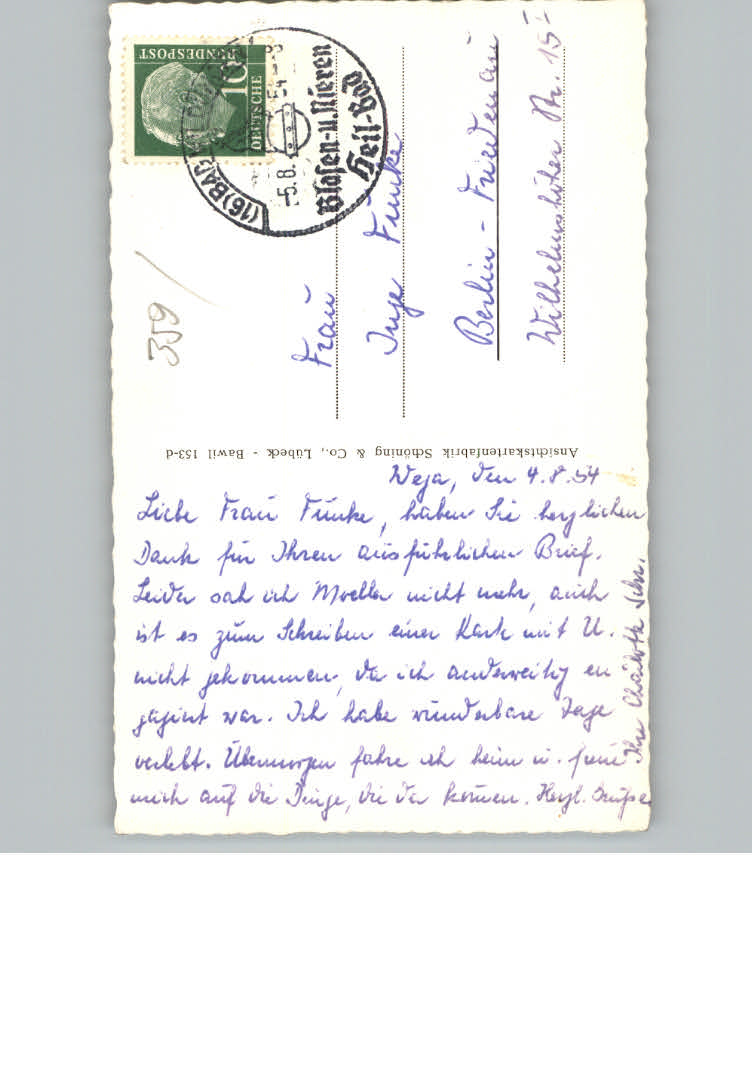 DEUTSCHE
BUNDESPOST
10
(16) BAD
-5.8.54
Blasen-u. Nieren
Heil-Bad
359
Frau
Inge Funke
Berlin - Friedenau
Wilhelmshöher Str. 15
Ansichtskartenfabrik Schöning & Co., Lübeck - Bawil 153-d
den 4.8.54
Liebe Frau Funke, haben Sie herzlichen
Dank für Ihren ausführlichen Brief.
Leider sah ich nicht mehr, auch
ist es zum Schreiben einer Karte mit U.
nicht gekommen, da ich anderweitig en
gagiert war. Ich habe wunderbare Tage
verlebt. Übermorgen fahre ich heim u. freue
mich auf die Dinge, die da kommen. Herzl. Grüße
Ihre Charlotte